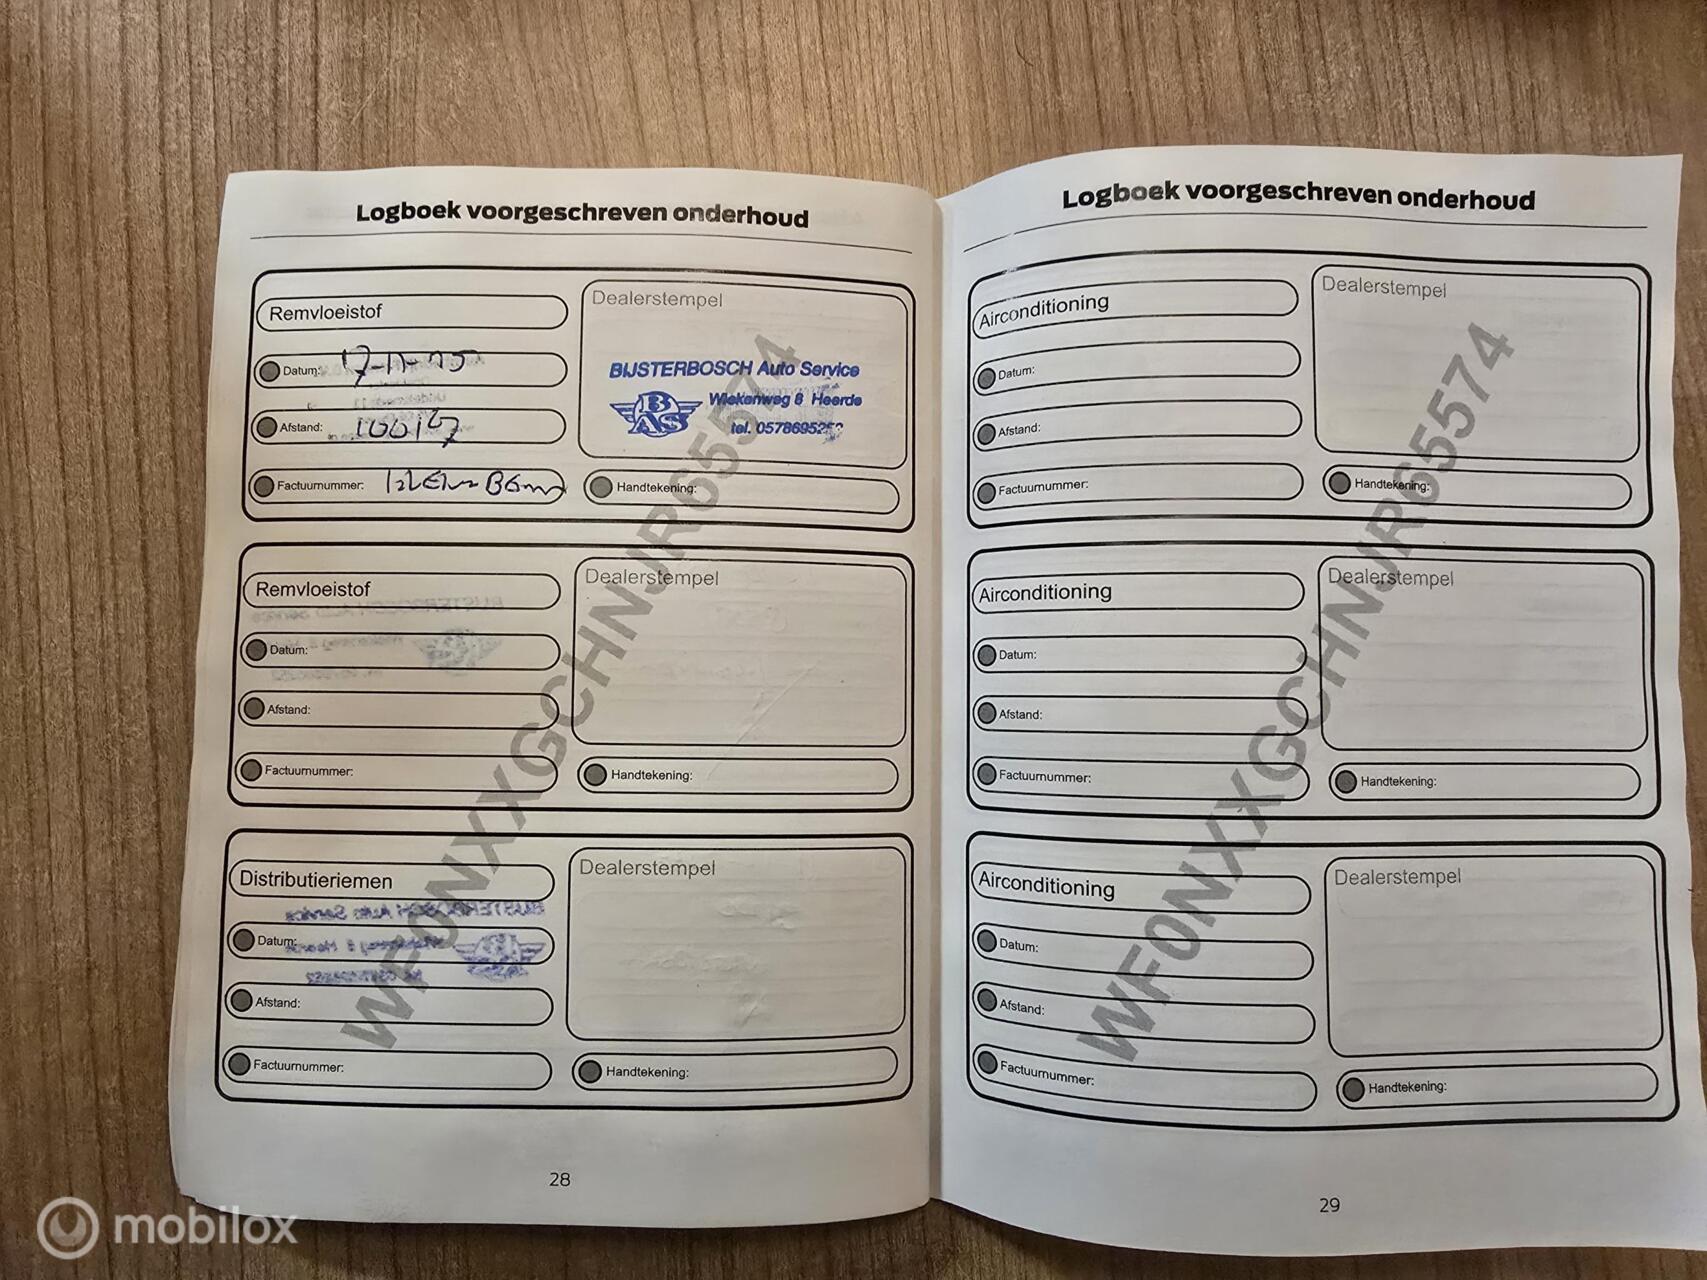 Logboek voorgeschreven onderhoud
Remvloeistof
Datum:
Afstand: 100167
Factuurnummer:
Dealerstempel
BIJSTERBOSCH Auto Service
BAS
Wiekenweg 8 Heerde
tel. 0578695252
Handtekening:
Remvloeistof
Datum:
Afstand:
Factuurnummer:
Dealerstempel
Handtekening:
Distributieriemen
Datum:
Afstand:
Factuurnummer:
Dealerstempel
Handtekening:
WF0NXXGCHNJR65574
28
Logboek voorgeschreven onderhoud
Airconditioning
Datum:
Afstand:
Factuurnummer:
Dealerstempel
Handtekening:
Airconditioning
Datum:
Afstand:
Factuurnummer:
Dealerstempel
Handtekening:
Airconditioning
Datum:
Afstand:
Factuurnummer:
Dealerstempel
Handtekening:
WF0NXXGCHNJR65574
29
mobilox